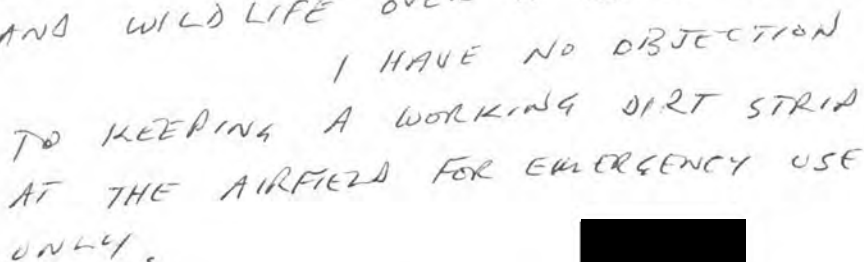 AND WILDLIFE
I HAVE NO OBJECTION
TO KEEPING A WORKING DIRT STRIP
AT THE AIRFIELD FOR EMERGENCY USE
ONLY.